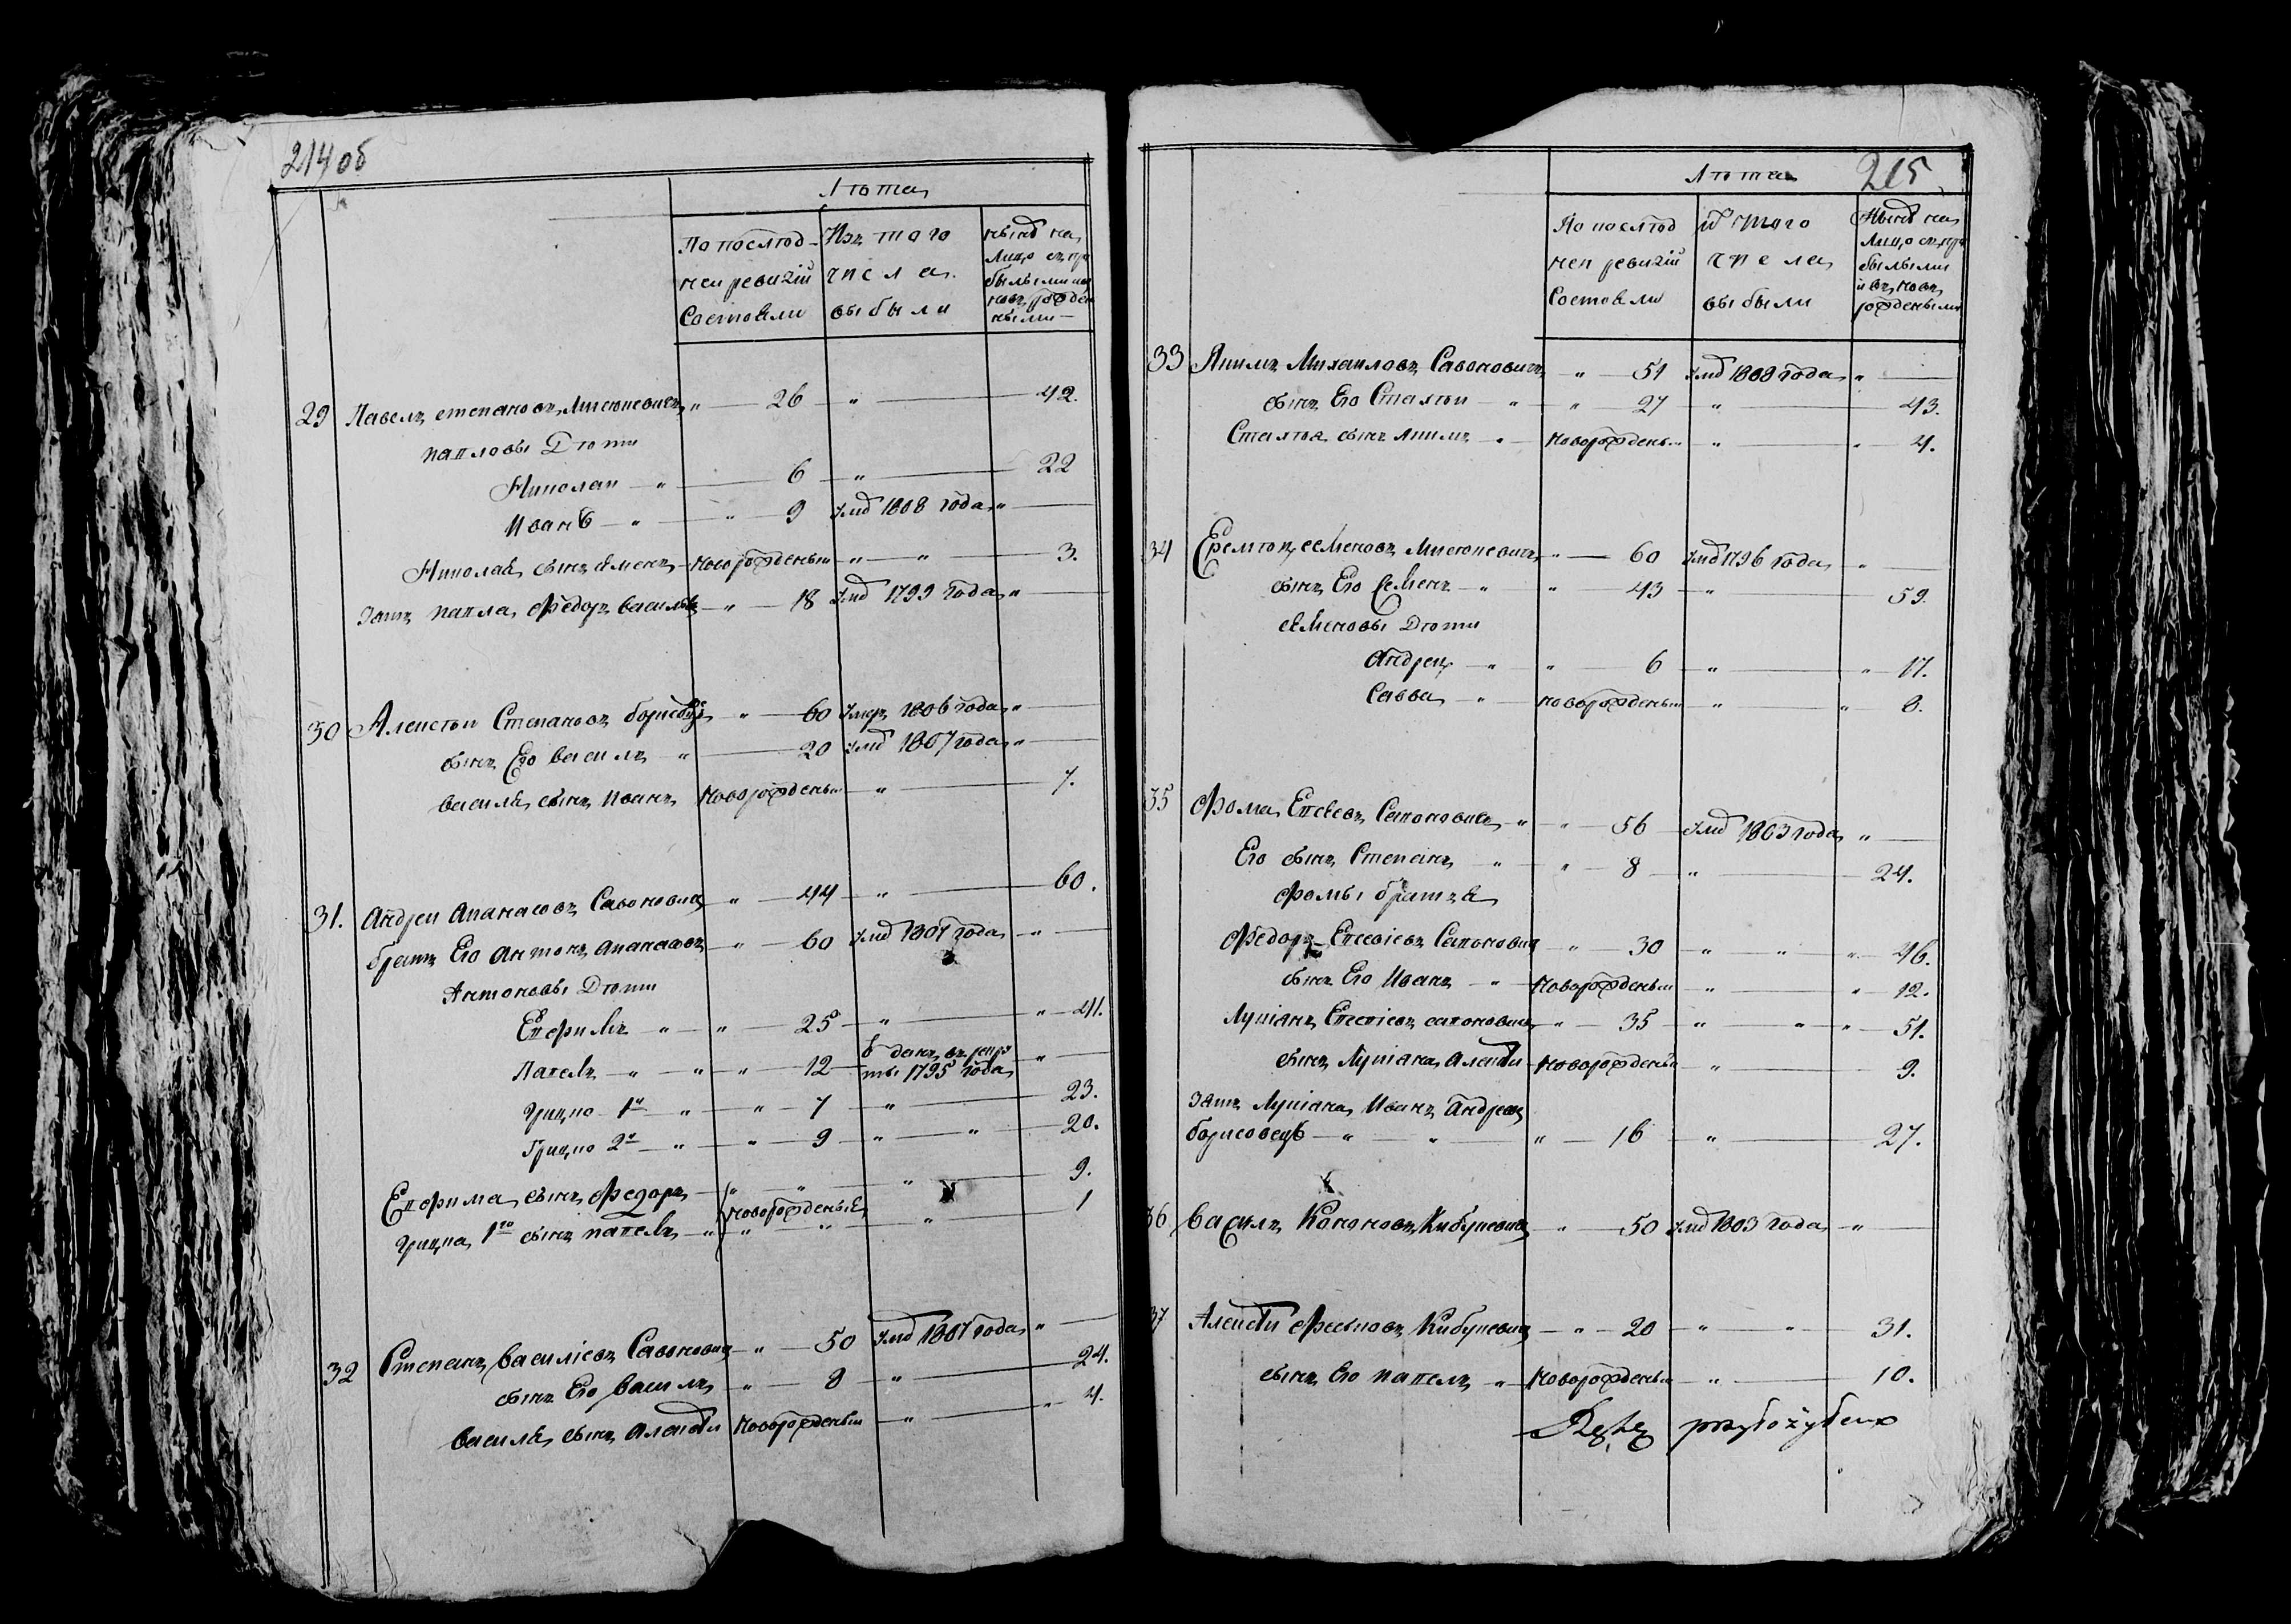 214 об
Лѣта
По послѣд-
ней ревизіи
Состояли
Изъ того
числа
выбыли
нынѣ на
Лицо съ при
былыми и
новъ рожден
ными
29 Павелъ степановъ " 26 " 42.
павловы Дѣти
Николай " 6 " 22
Иванъ " " 9 умѣ 1808 года "
Николая сынъ семенъ новорожденый " " 3.
Зять павла Федоръ василевъ " 18 умѣ 1799 года "
30 Алексѣй Степановъ " 60 умер 1806 года "
сынъ Его василъ " 20 умѣ 1807 года "
василя сынъ иванъ новорожденый " 7.
31. Андрей Апанасовъ Савоновичъ " 44 " 60.
братъ Его антонъ апанасовъ " 60 умѣ 1807 года "
Антоновы Дѣти
Евфимъ " " 25 " " 41.
Павелъ " " " 12 тданъ въ рекру
ты 1795 года "
Грицко 1й " " 7 " 23.
Грицко 2й " " 9 " " 20.
Евфима сынъ федоръ " " " 9.
новорожденыя
Грицка 1го сынъ павелъ " " " " 1
32 Степанъ Василіевъ Савоновичъ " 50 умѣ 1807 года "
сынъ Его василъ " 8 " 24.
василя сынъ алексѣй новорожденый " " 4.
215
Лѣта
По послѣд
ней ревизіи
Состояли
ис того
числа
выбыли
Нынѣ на
Лицо съ при
былыми
и въ новъ
рождеными
33 Якимъ Михаиловъ Савоновичъ " 51 умѣ 1808 года "
сынъ Его Стахѣй " " 27 " 43.
Стахѣя сынъ якимъ " новорожденый " " 4.
34 Еремѣй семеновъ " 60 умѣ 1796 года "
сынъ Его семенъ " " 43 " 59.
семеновы Дѣти
андрей " " 6 " " 17.
Савва " новорожденый " " 8.
35 Фома Евсеевъ Сапоновичъ " " 56 умѣ 1803 года "
Его сынъ Степанъ " " 8 " 24.
Фомы братья
Федоръ Евсевіевъ Сапоновичъ " 30 " " " 46.
сынъ Его Иванъ " новорожденый " " 12.
Лукіанъ сапоновичъ " 35 " " " 51.
сынъ Лукіана алексѣй новорожденый " 9.
зять Лукіана Иванъ андреевъ
борисовецъ " " " 16 " 27.
36 василъ Кононовъ Кибукевичъ " 50 умѣ 1803 года "
37 Алексѣй Кибукевичъ " 20 " " 31.
сынъ Его павелъ " новорожденый " 10.